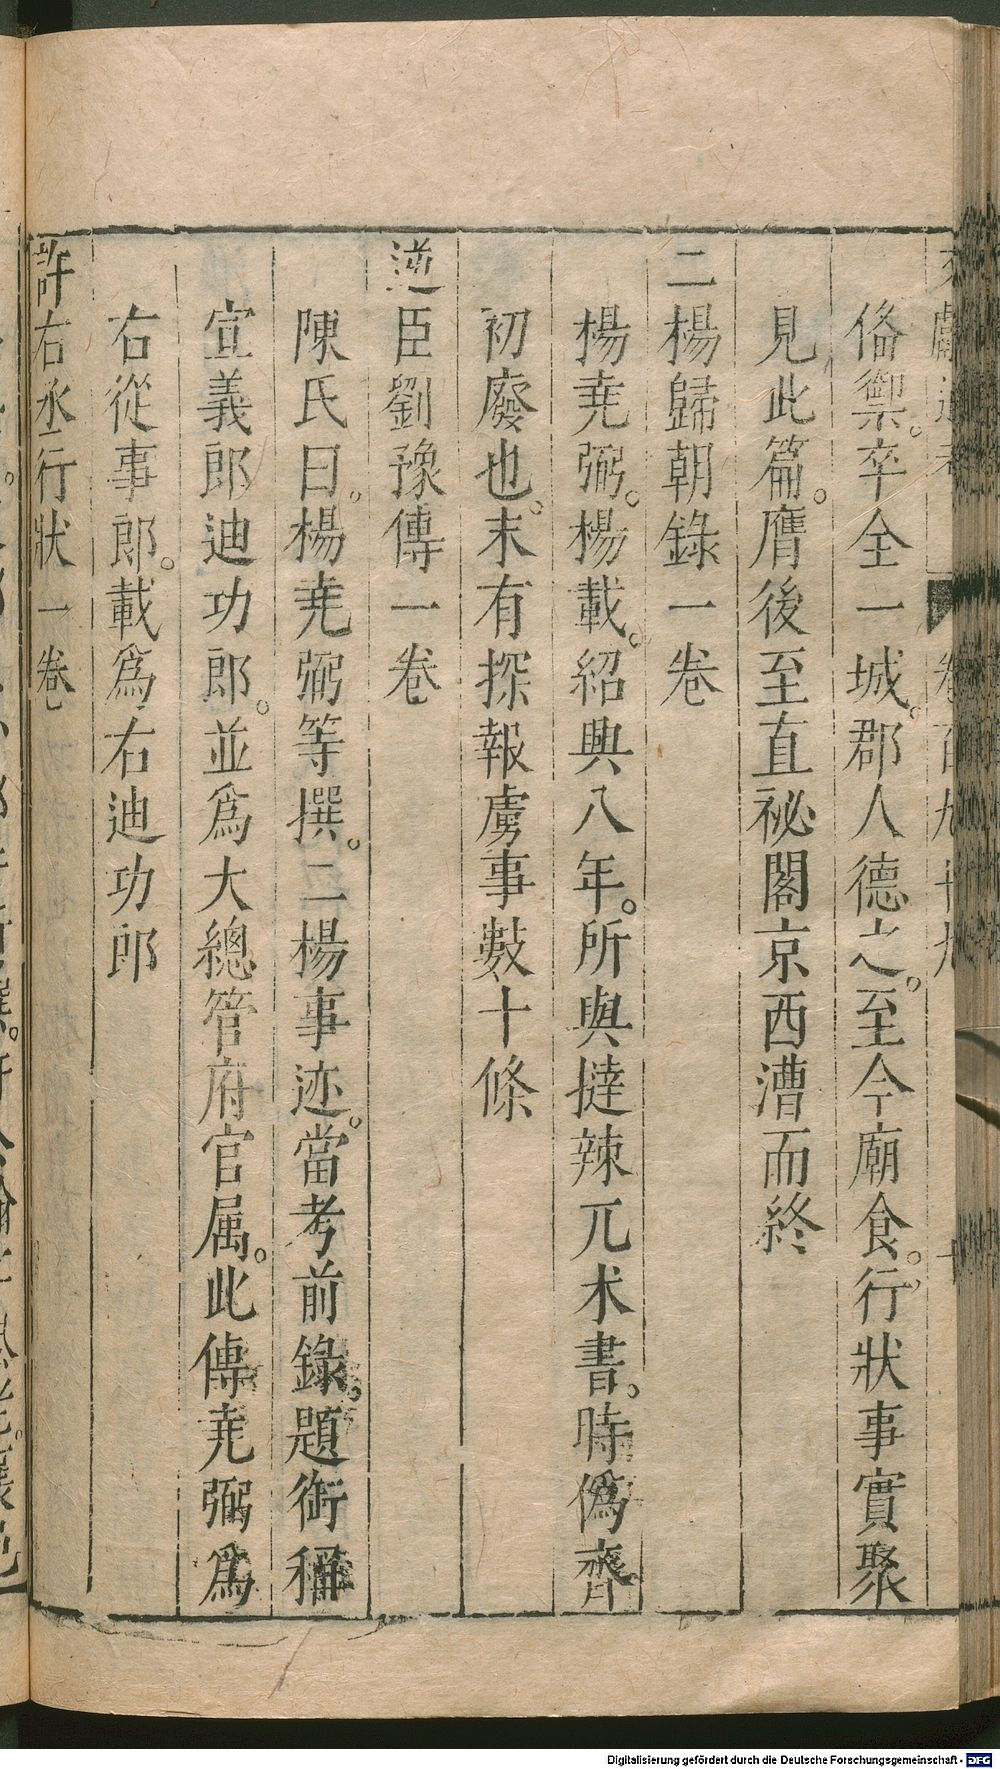 偹禦。卒全一城。郡人德之。至今廟食。行狀事實聚
見此篇。膺後至直祕閣京西漕而終
二楊歸朝錄一卷
楊堯弼。楊載。紹興八年。所與撻辣兀术書。時僞齊
初廢也。末有探報虜事數十條
逆臣劉豫傳一卷
陳氏曰。楊堯弼等撰。二楊事迹。當考前錄。題銜稱
宣義郎迪功郎。並爲大總管府官属。此傳堯弼爲
右從事郎。載爲右迪功郎
許右丞行狀一卷
Digitalisierung gefördert durch die Deutsche Forschungsgemeinschaft - DFG